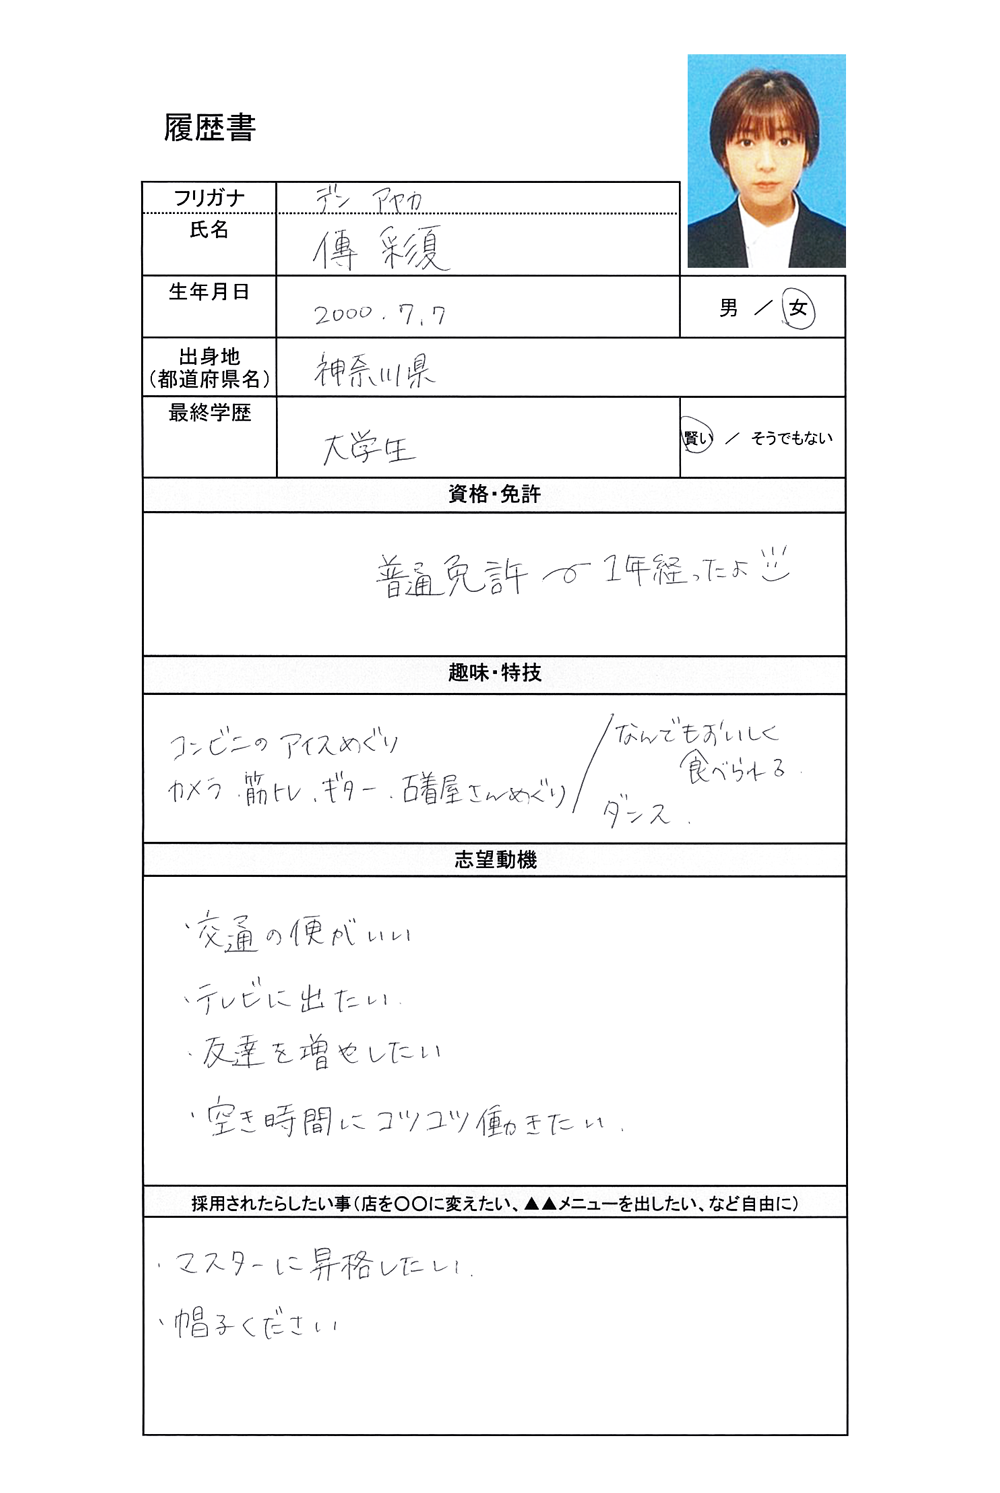 履歴書
フリガナ
デン アヤカ
氏名
傳 彩夏
生年月日
2000.7.7
男 / 女
出身地
(都道府県名)
神奈川県
最終学歴
大学生
賢い / そうでもない
資格・免許
普通免許 〜 1年経ったよ
趣味・特技
コンビニのアイスめぐり
カメラ.筋トレ、ギター.古着屋さんめぐり
/なんでもおいしく
食べられる.
ダンス.
志望動機
・交通の便がいい
・テレビに出たい.
・友達を増やしたい
・空き時間にコツコツ働きたい.
採用されたらしたい事(店を〇〇に変えたい、▲▲メニューを出したい、など自由に)
・マスターに昇格したい.
・帽子ください